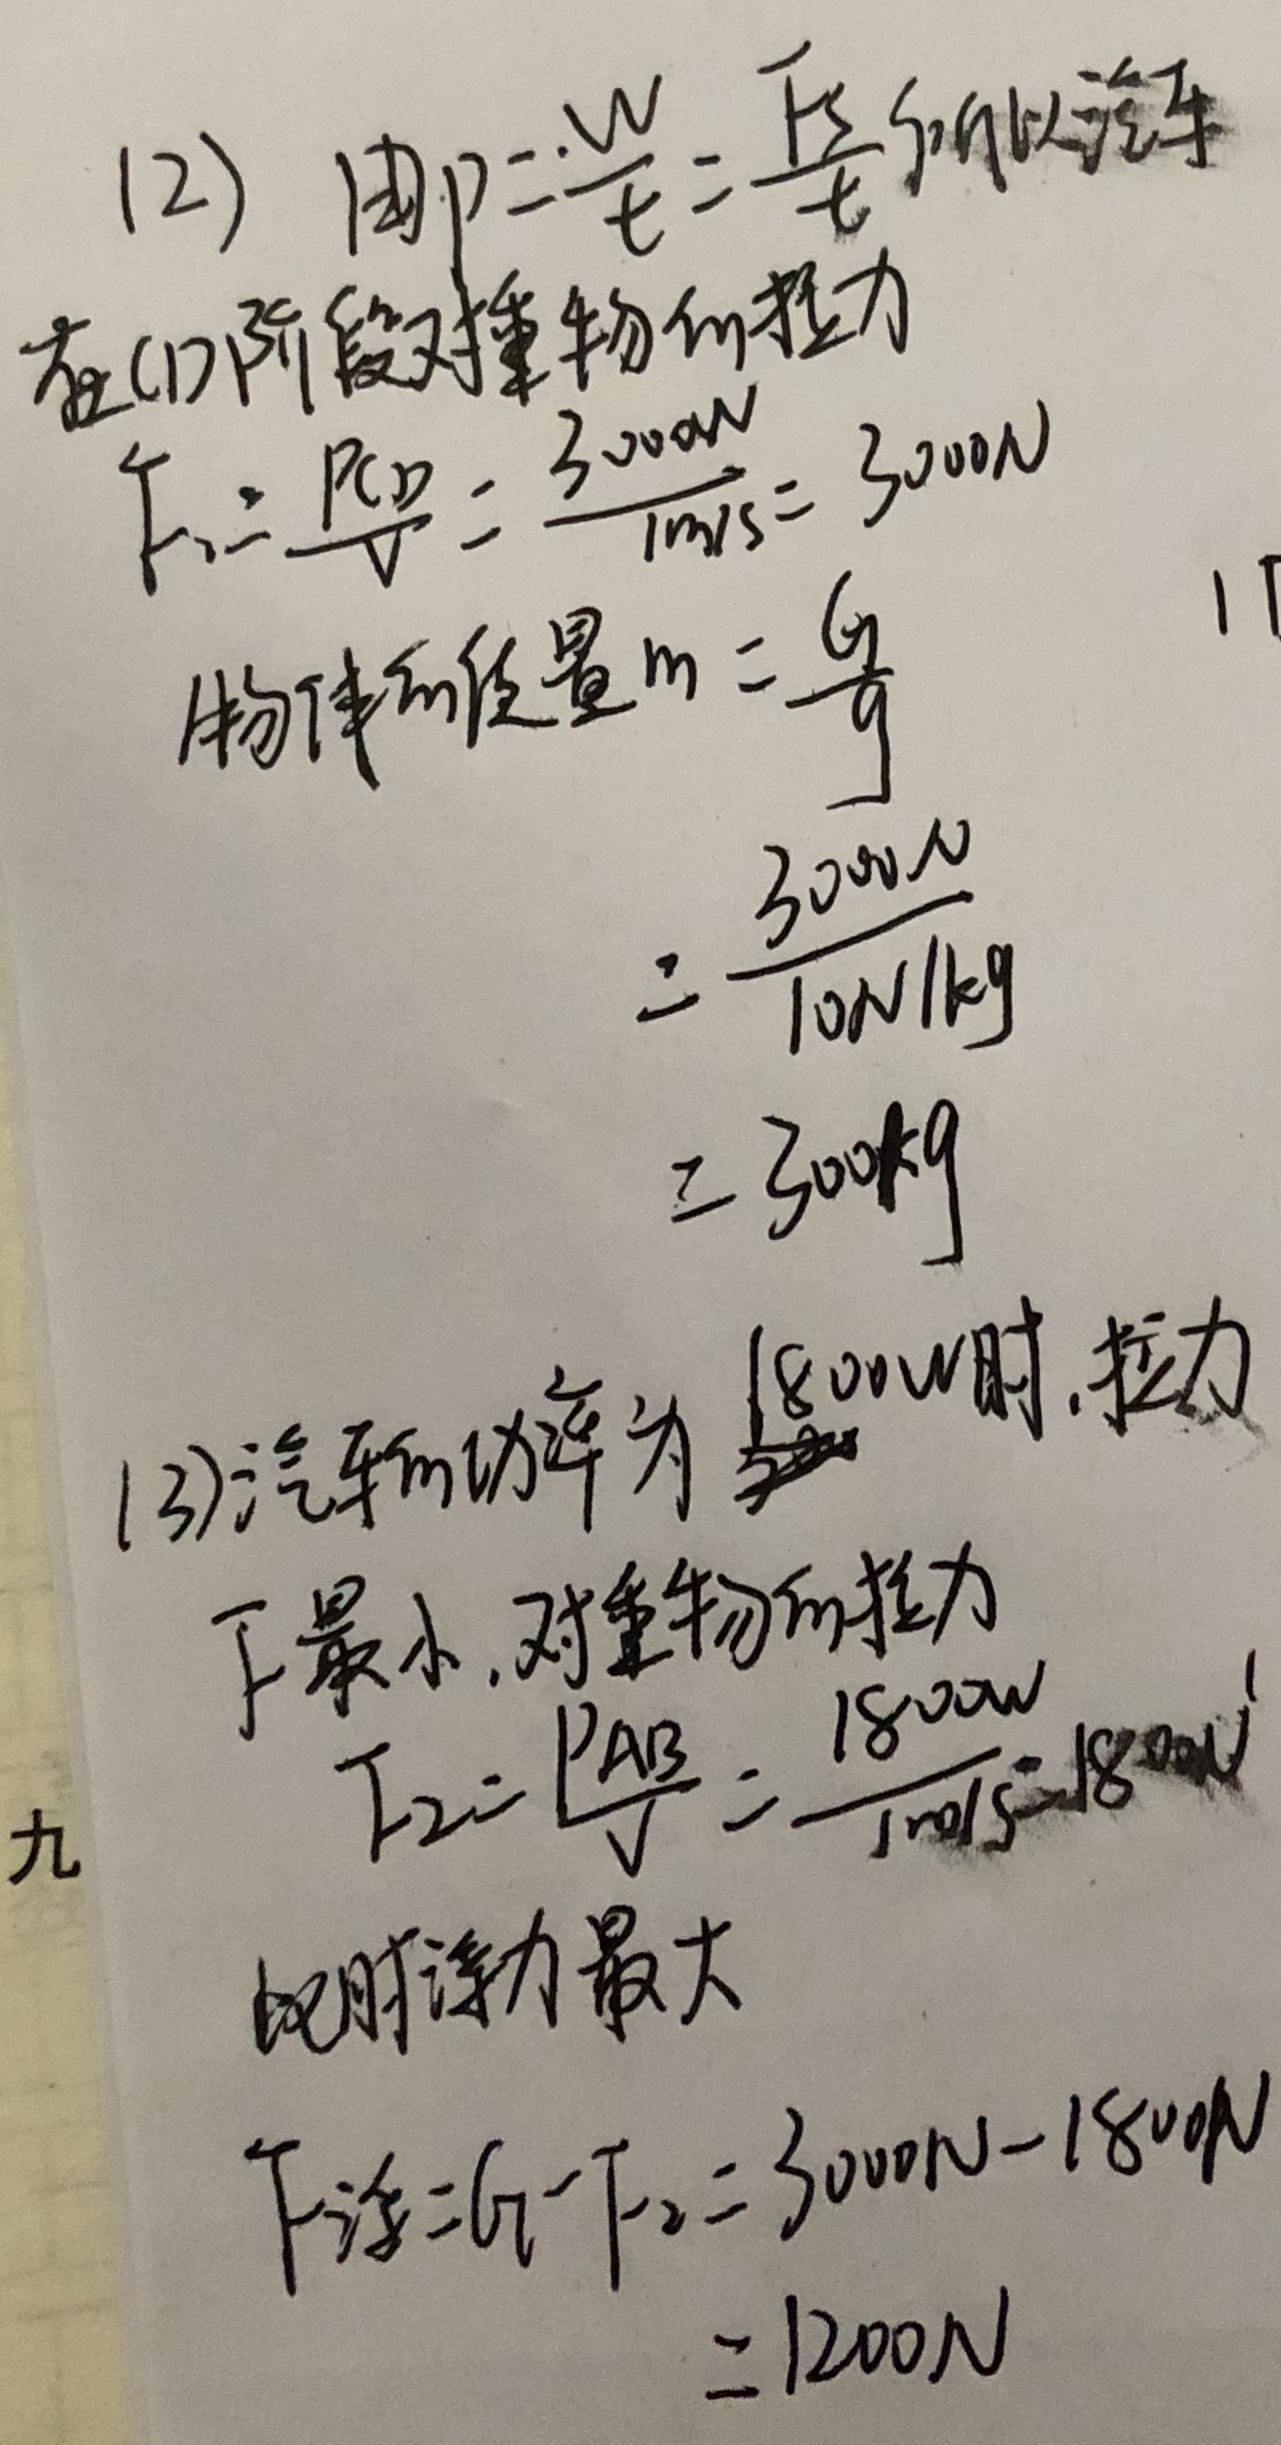 (2) 由P=W/t=Fs/t 所以汽车
在CD阶段对重物的拉力
F₁=PCD/V=3000W/1m/s=3000N
物体的质量m=G/g
=3000N/10N/kg
=300kg
(3)汽车的功率为1800W时,拉力
F最小,对重物的拉力
F2=PAB/V=1800W/1m/s=1800N
此时浮力最大
F浮=G-F₂=3000N-1800N
=1200N
九